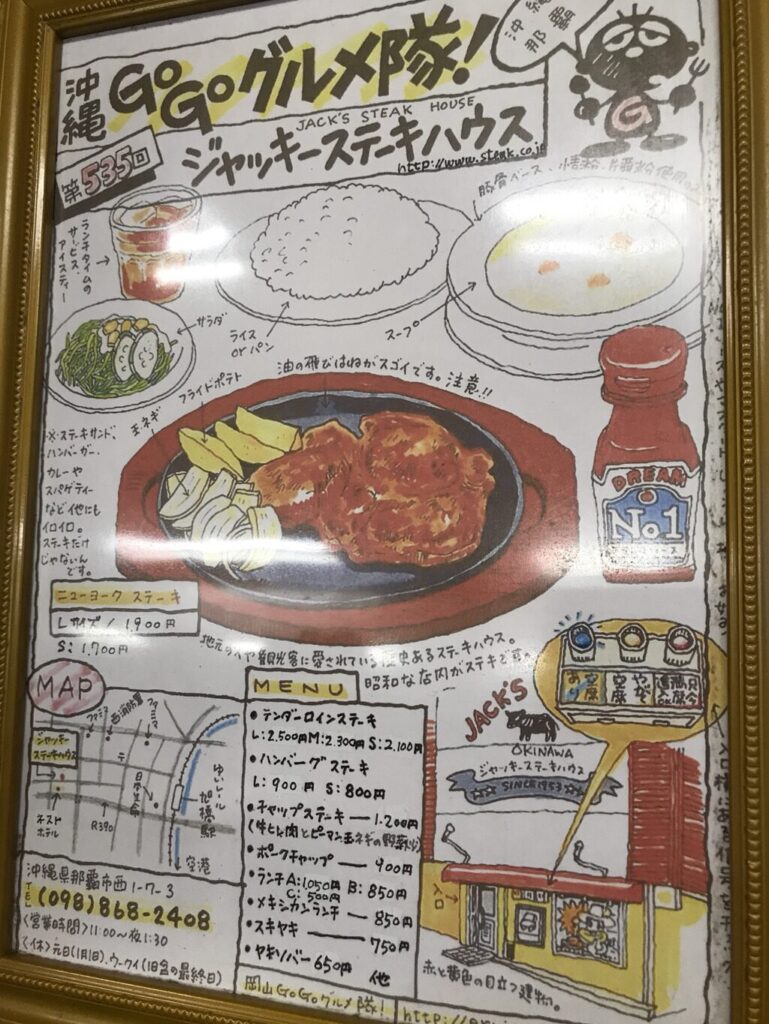 沖縄
那覇
沖縄
GoGoグルメ隊!
JACK'S STEAK HOUSE
第535回
ジャッキーステーキハウス
http://www.steak.co.jp
豚骨ベース、
ランチタイムの
サービス、
アイスティー
サラダ
ライス
orパン
スープ
油の飛びはねがスゴイです。注意!!
フライドポテト
玉ネギ
※ステーキサンド、
ハンバーガー、
カレーや
スパゲティー
など他にも
イロイロ。
ステーキだけ
じゃないんです。
DREAM
No1
ニューヨークステーキ
Lサイズ/1,900円
S:1,700円
地元の人や観光客に愛されている歴史あるステーキハウス。
昭和な店内がステキです。
MAP
ファミマ
西消防署
ファミマ
ジャッキー
ステーキハウス
〒
日本生命
ゆいレール
旭橋駅
ネスト
ホテル
R390
空港
沖縄県那覇市西1-7-3
TEL (098)868-2408
〈営業時間〉11:00〜夜1:30
〈休〉元日(1月1日)、ウークイ(旧盆の最終日)
MENU
●テンダーロインステーキ
L:2,500円M:2,300円S:2,100円
●ハンバーグステーキ
L:900円 S:800円
●チャップステーキ―1,200円
(牛ヒレ肉とピーマン玉ネギの野菜炒)
●ポークチャップ ― 900円
●ランチA:1,050円 B:850円
C:500円
●メキシカンランチ ― 850円
●スキヤキ ― 750円
●ヤキソバー 650円 他
岡山GoGoグルメ隊!
空席あり
やや空席
只今満席
JACK'S
OKINAWA
ジャッキーステーキハウス
SINCE1953
入口
赤と黄色の目立つ建物。
入口横にある信号